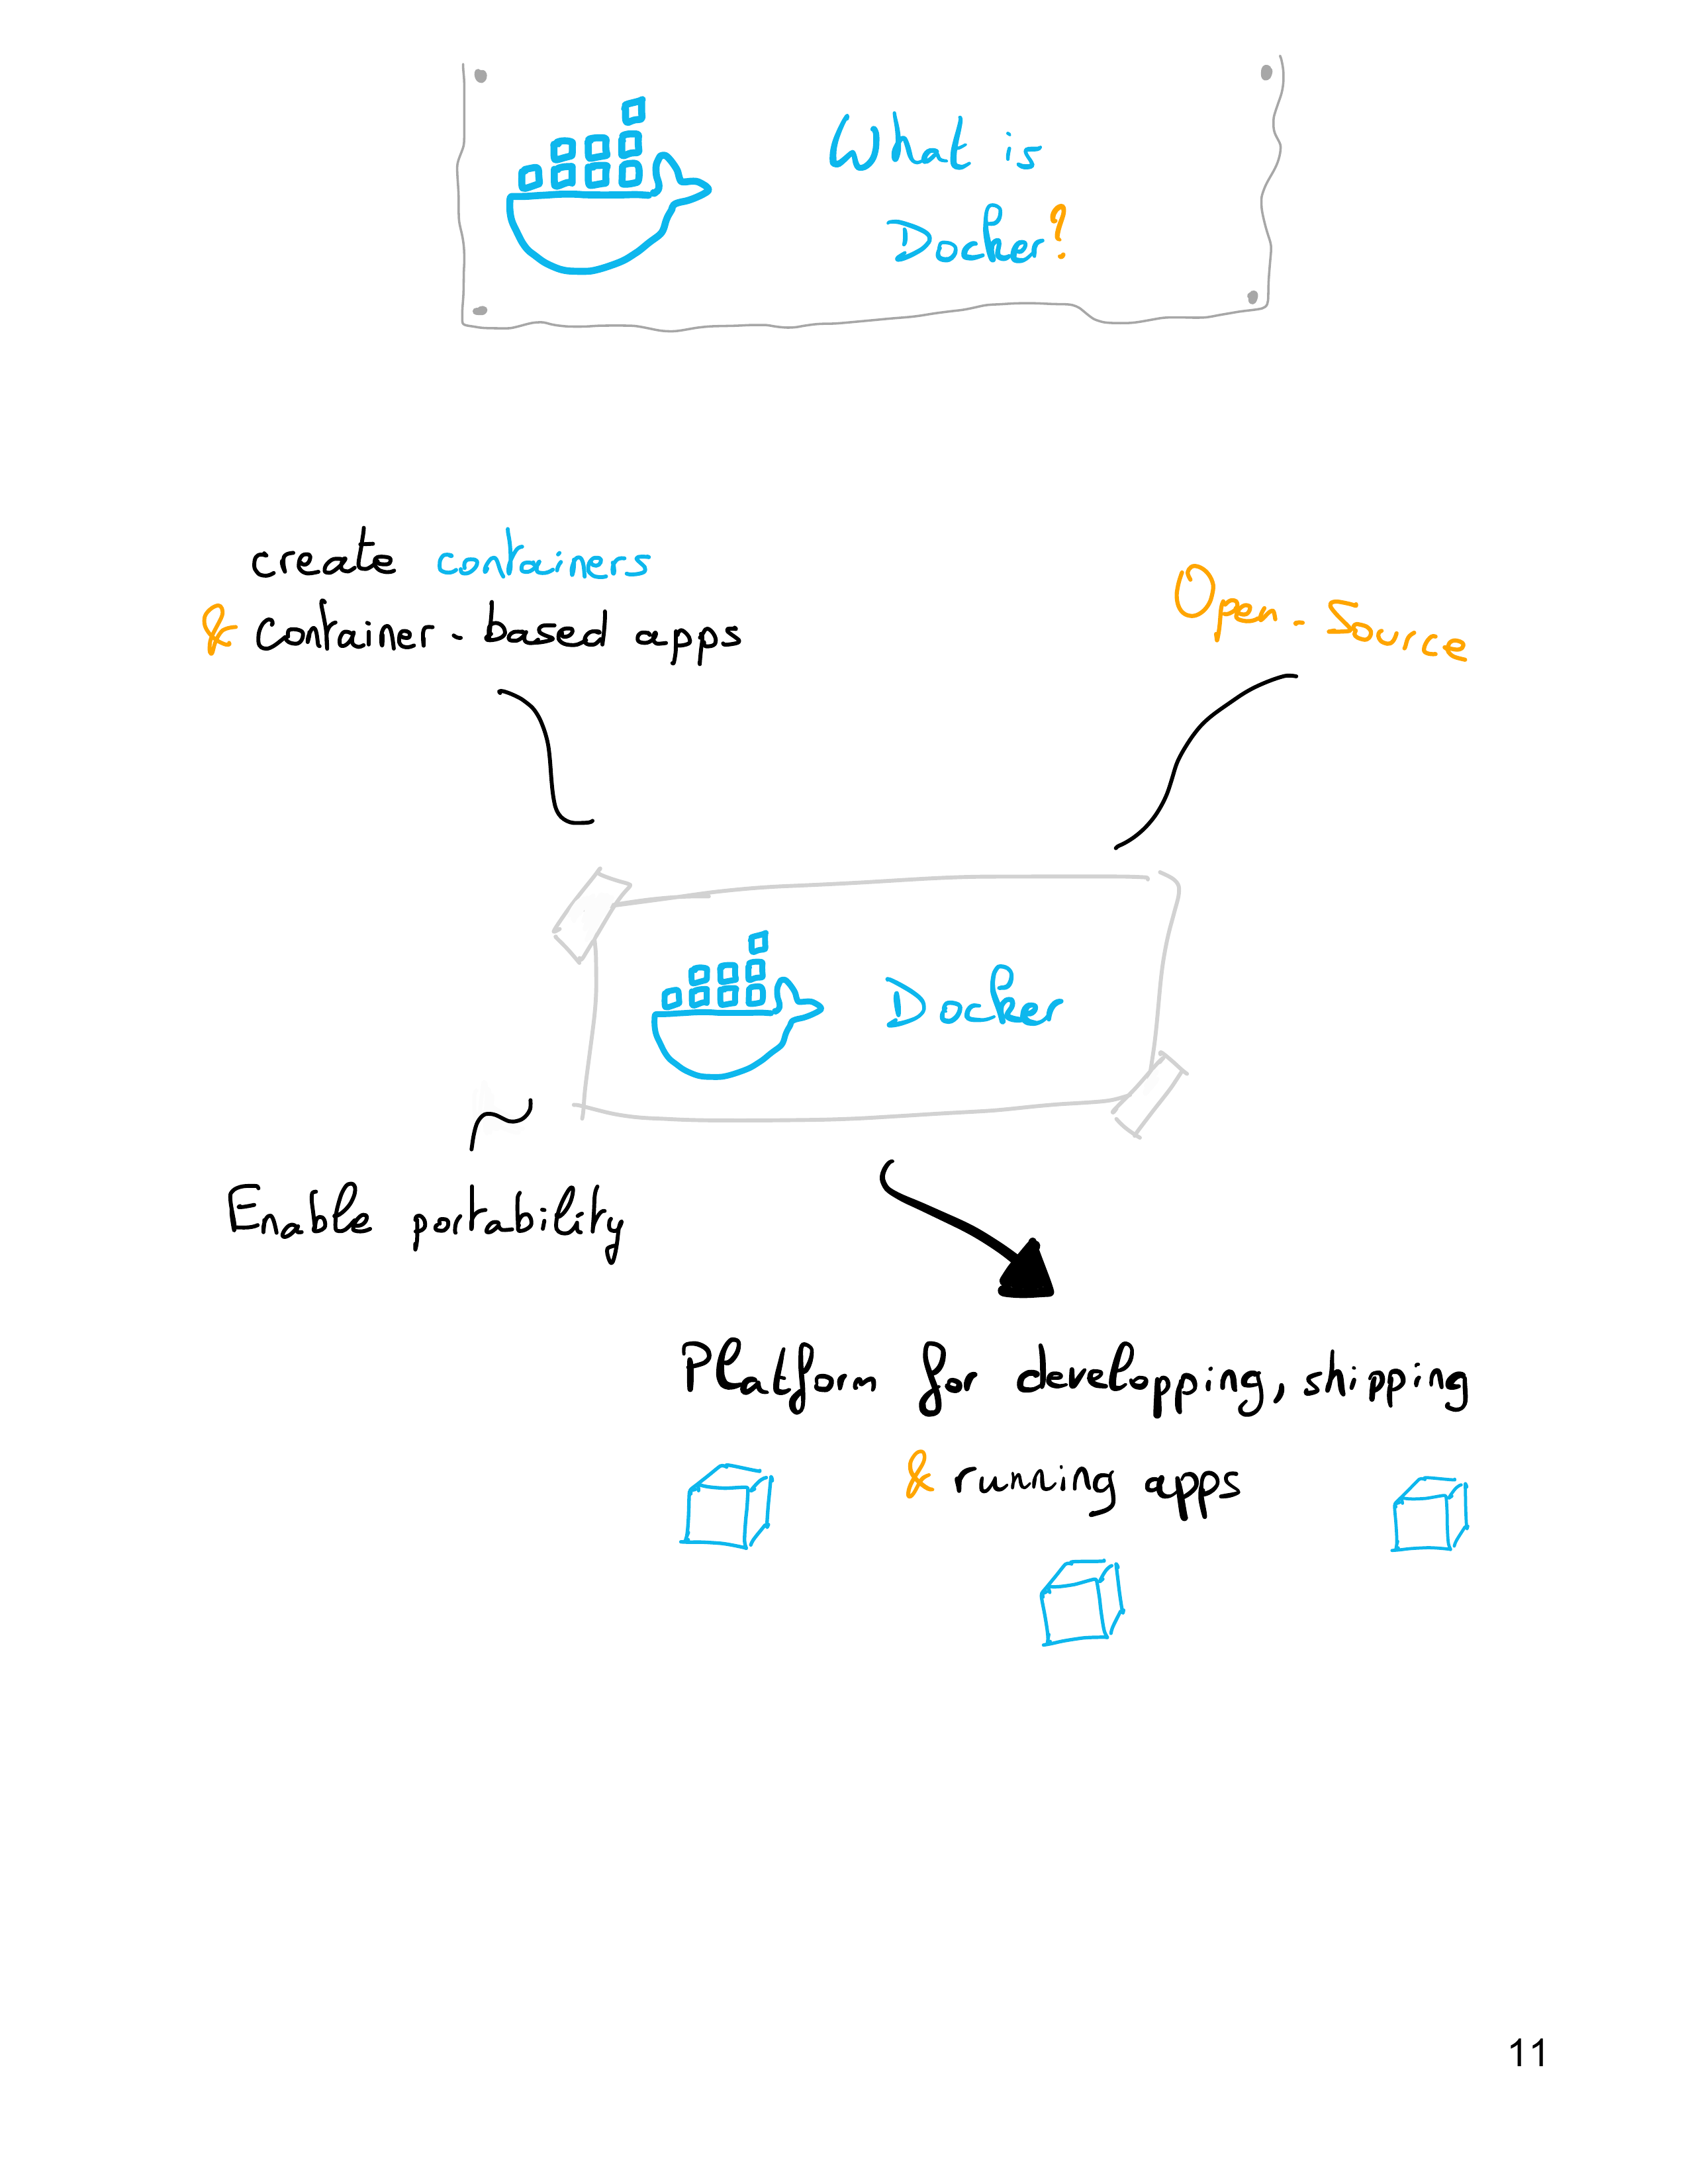 What is
Docker?
create containers
& container-based apps
Open-Source
Docker
Enable portability
Platform for developping, shipping
& running apps
11